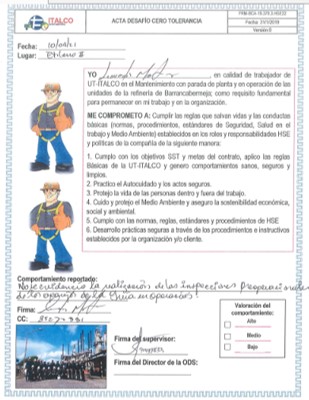 ITALCO
ACTA DESAFÍO CERO TOLERANCIA
Versión 0
Fecha: 10/05/21
Lugar: Etileno II
YO , en calidad de trabajador de
UT-ITALCO en el Mantenimiento con parada de planta y en operación de las
unidades de la refinería de Barrancabermeja; como requisito fundamental
para permanecer en mi trabajo y en la organización.
ME COMPROMETO A: Cumplir las reglas que salvan vidas y las conductas
básicas (normas, procedimientos, estándares de Seguridad, Salud en el
trabajo y Medio Ambiente) establecidos en los roles y responsabilidades HSE
y políticas de la compañía de la siguiente manera:
1. Cumplo con los objetivos SST y metas del contrato, aplico las reglas
Básicas de la UT-ITALCO y genero comportamientos sanos, seguros y
limpios.
2. Practico el Autocuidado y los actos seguros.
3. Protejo la vida de las personas dentro y fuera del trabajo.
4. Cuido y protejo el Medio Ambiente y aseguro la sostenibilidad económica,
social y ambiental.
5. Cumplo con las normas, reglas, estándares y procedimientos de HSE
6. Desarrollo prácticas seguras a través de los procedimientos e instructivos
establecidos por la organización y/o cliente.
Comportamiento reportado:
No se evidencia la realización de las inspecciones preoperacionales
de los de la Grúa en operación.
Firma:
CC:
Firma del supervisor:
Firma del Director de la ODS:
Valoración del
comportamiento:
Alto
Medio
Bajo